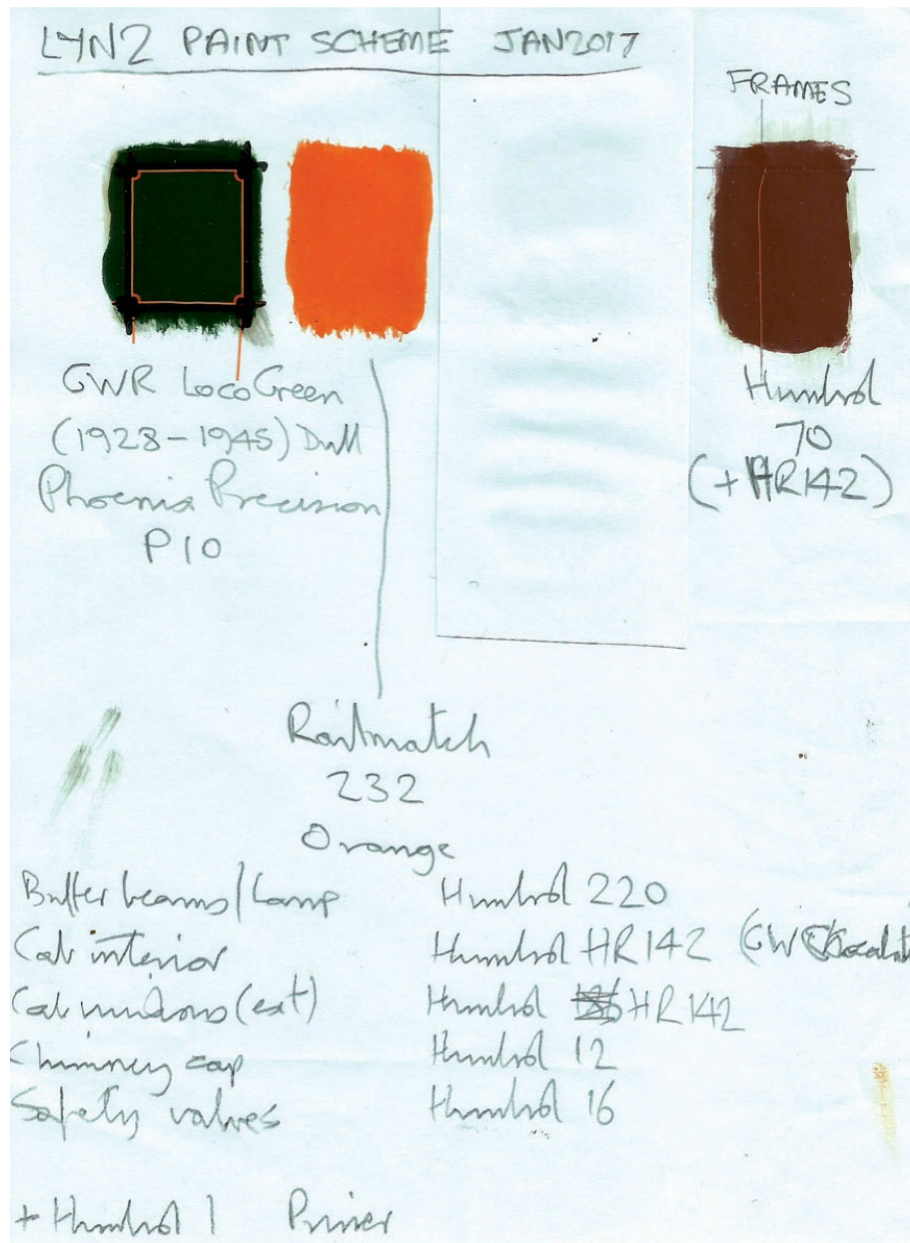 LYN2 PAINT SCHEME JAN 2017
FRAMES
GWR Loco Green
(1928-1945) Dull
Phoenix Precision
P10
Humbrol
70
(+ HR142)
Railmatch
232
Orange
Buffer beams/Lamp Humbrol 220
Cab interior Humbrol HR142 (GW Chocolate
Cab windows (ext) Humbrol HR142
Chimney cap Humbrol 12
Safety valves Humbrol 16
+ Humbrol 1 Primer